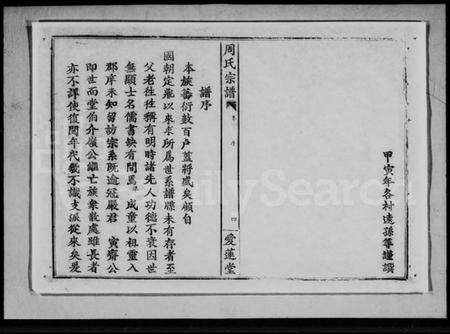 甲寅年各村逺孫等謹譔
周氏宗譜
序
四
愛蓮堂
譜序
本族蕃衍數百户蓋將盛矣顧自
國朝定鼎以來求所爲世系譜牒未有存者至
父老徃徃稱有明時諸先人功德不衰因世
無顯士名儒書缺有間焉 成童以祖重入
郡庠未知留訪宗系旣逾冠嚴君 寅齋公
即世而堂伯介嶺公繼亡族衆散處雖長者
亦不課使復閱年代數不熾支派從來矣爰
FamilySearch